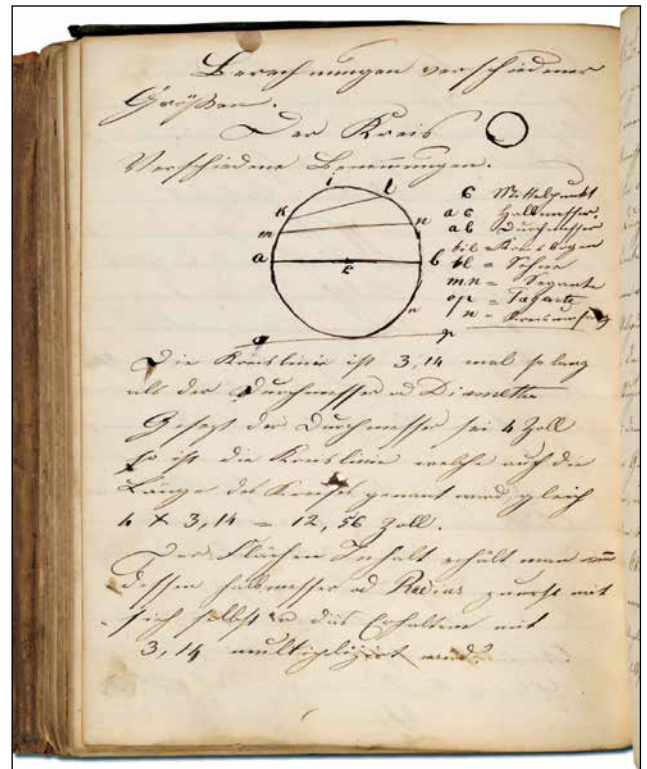 Berechnungen verschiedener
Größen.
Der Kreis
Verschiedene Benennungen.
i l
k
m n
a c b
n
o p
c Mittelpunkt
a c Halbmesser.
a b Durchmesser
kil = Kreisbogen
kl = Sehne
m.n = Segante
op = Tagante
n = Kreisumfang
Die Kreislinie ist 3,14 mal so lang
als der Durchmesser od Diameter
Gesezt der Durchmesser sei 4 Zoll
so ist die Kreislinie welche auch die
Länge des Kreises genant wird gleich
4 × 3,14 = 12,56 Zoll.
Der Flächen Inhalt erhält man
dessen halbmesser od Radius zuerst mit
sich selbst u das Erhaltene mit
3,14 multiplizirt wird.